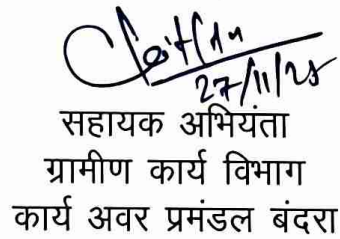 27/11/25
सहायक अभियंता
ग्रामीण कार्य विभाग
कार्य अवर प्रमंडल बंदरा